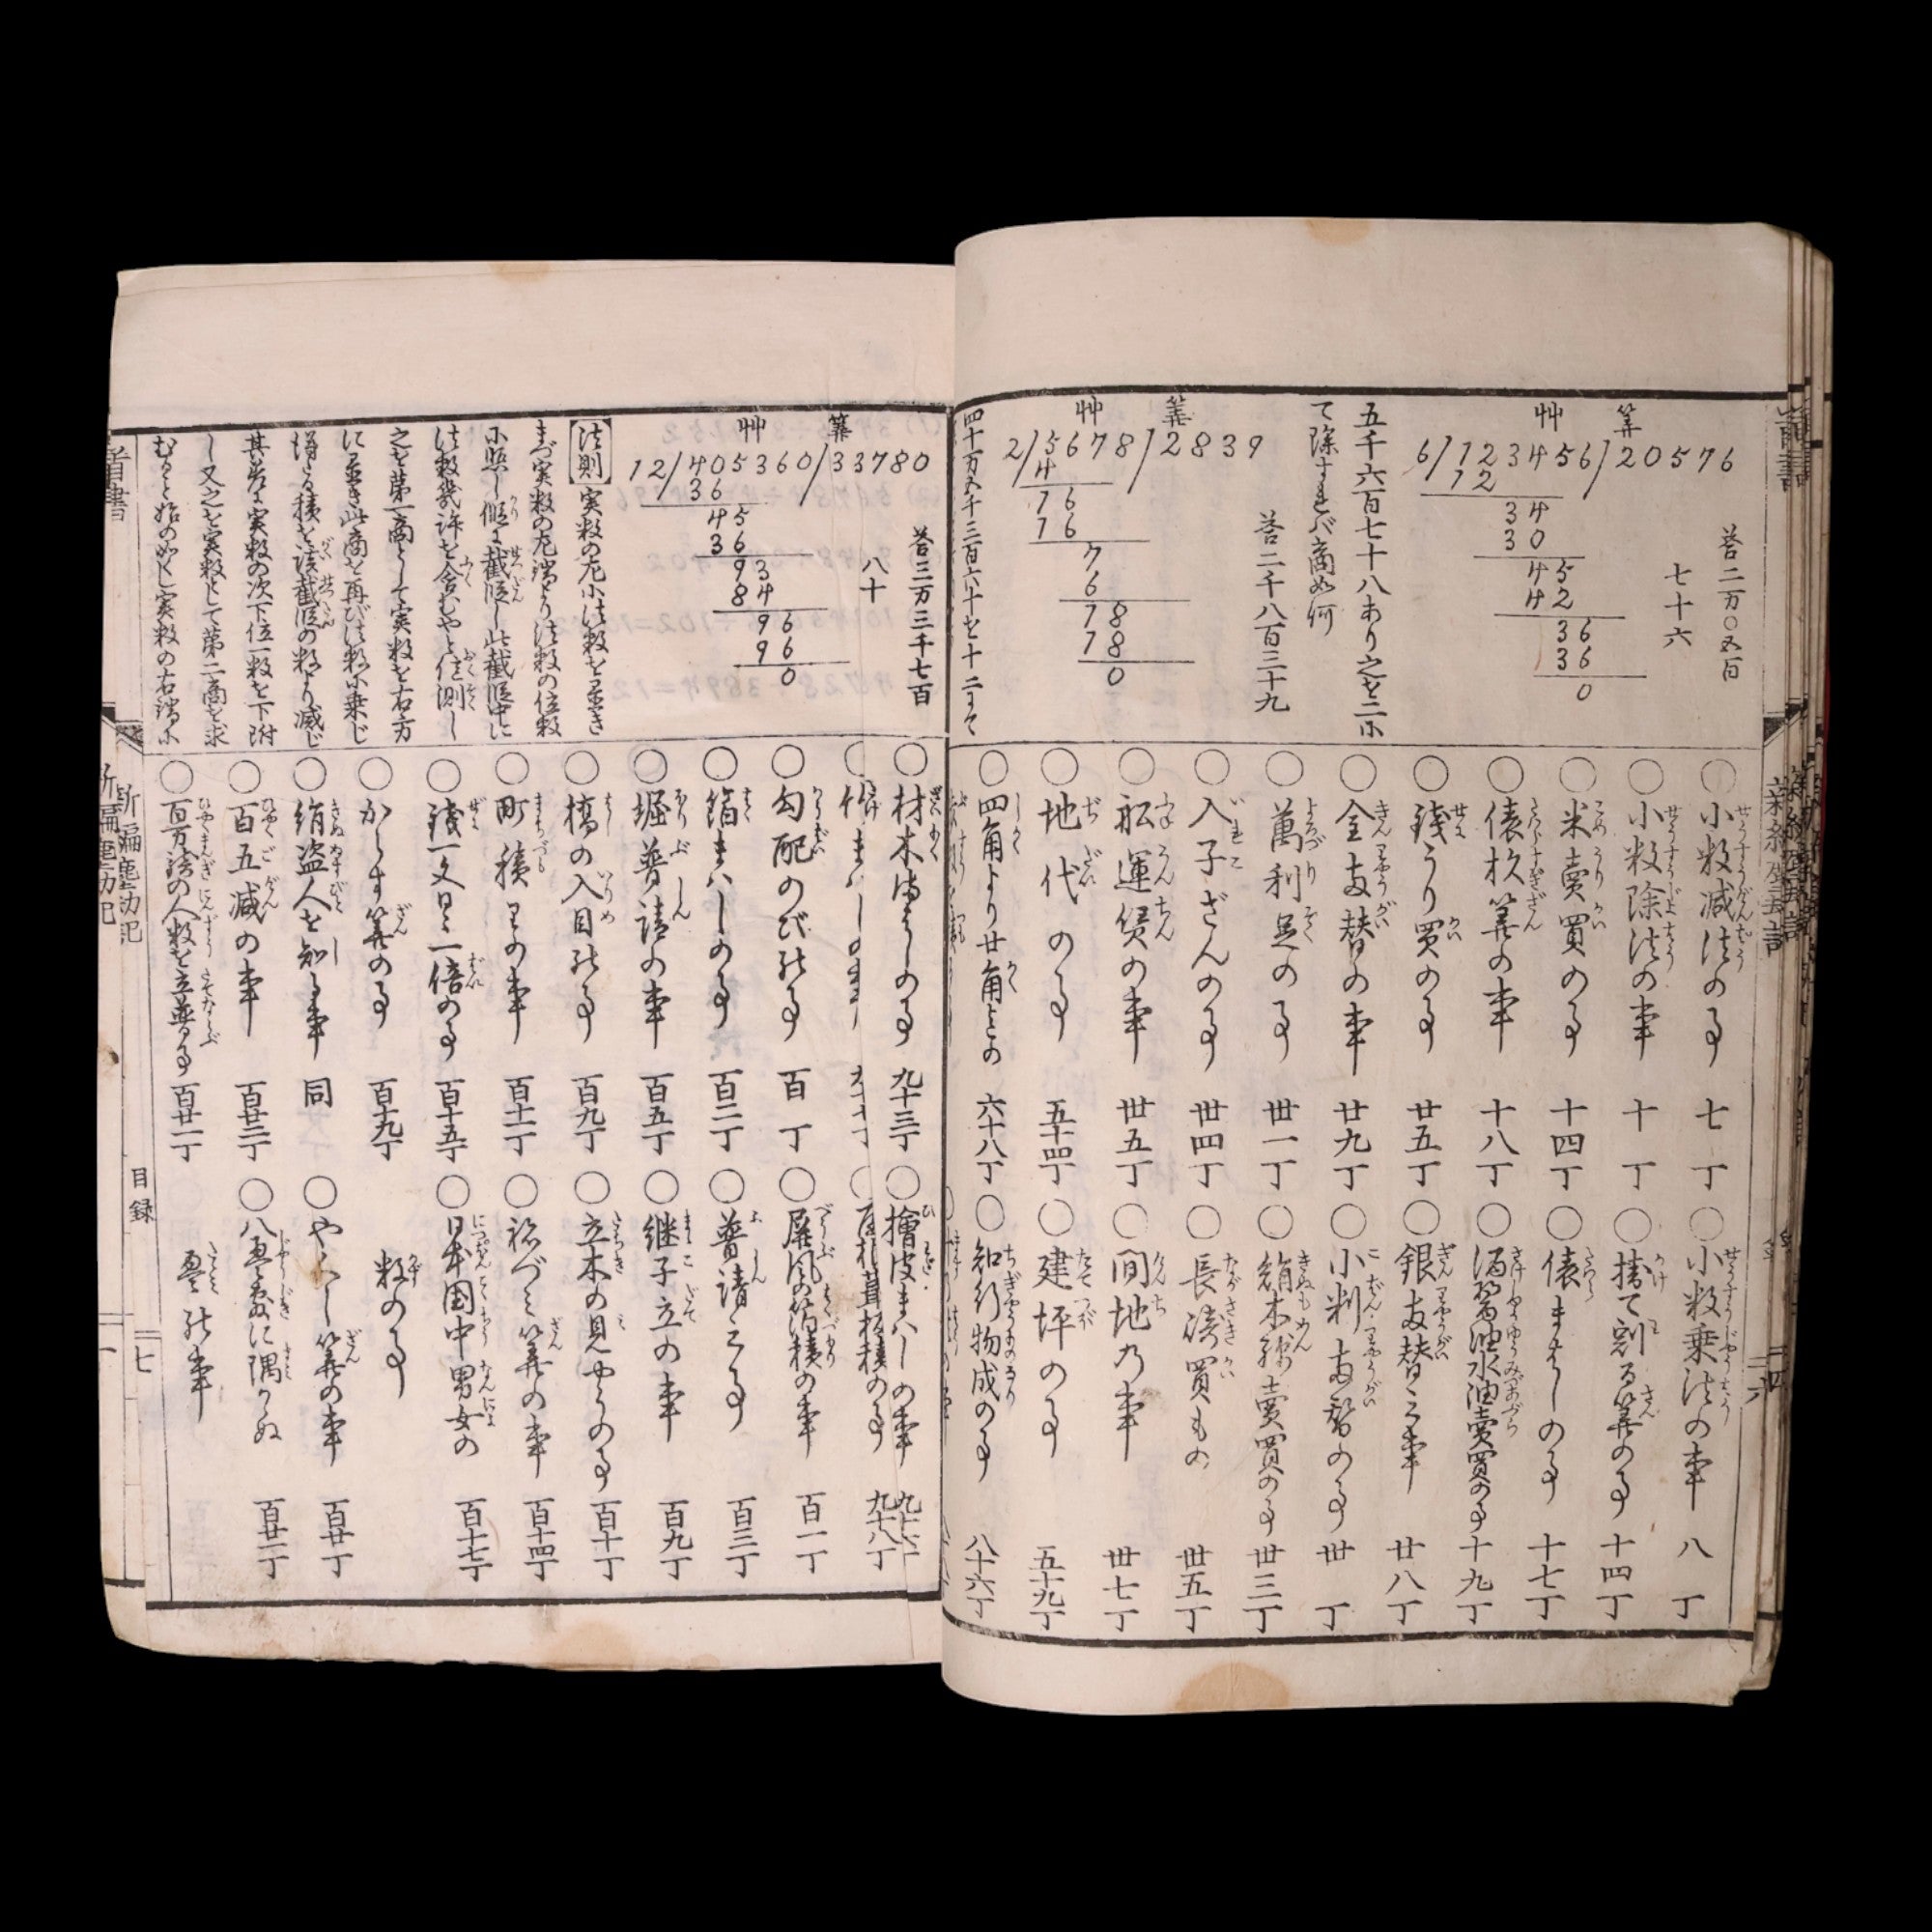 筭
艸
6/123456/20576
12
34
30
45
42
36
36
0
答二万〇五百
七十六
五千六百七十八あり之を二に
て除すれバ商如何
筭
艸
2/5678/2839
4
16
16
7
6
18
18
0
答二千八百三十九
四十万五千三百六十を十二にて
小数減法の事 七丁
小数乗法の事 八丁
小数除法の事 十丁
掛て割る筭の事 十四丁
米賣買の事 十四丁
俵まはしの事 十七丁
俵杦筭の事 十八丁
酒醤油水油賣買の事 十九丁
銭うり買の事 廿五丁
銀両替之事 廿八丁
金両替の事 廿九丁
小判両替の事 丗丁
萬利足の事 丗一丁
絹木綿賣買の事 丗三丁
入子ざんの事 丗四丁
長崎買もの 丗五丁
舩運賃の事 丗五丁
間地乃事 丗七丁
地代の事 五十四丁
建坪の事 五十九丁
四角より廿角との 六十八丁
知行物成の事 八十六丁
筭
艸
12/405360/33780
36
45
36
93
84
96
96
0
答三万三千七百
八十
法則
実数の左に法数を置き
まづ実数の左端より法数の位数
に照し假に截断し此截断中に
法数幾許を含むやと憶測し
之を第一商として実数を右方
に置き此商を再び法数に乗じ
得る積を該截断の数より減じ
其差に実数の次下位一数を下附
し又之を実数として第二商を求
むること始の如くし実数の右端に
材木まはしの事 九十三丁
檜皮まハしの事
勾配のび の事 百丁
屏風の箔積の事 百一丁
箔まハしの事 百二丁
普請之事 百三丁
堀普請の事 百五丁
継子立の事 百九丁
橋の入目の事 百九丁
立木の見やうの事 百十丁
町積りの事 百十一丁
祢づミ筭の事 百十四丁
銭一文日に一倍の事 百十五丁
日本国中男女の
数の事 百十七丁
からす筭の事 百十九丁
絹盗人を知る事 同
やくハし筭の事 百廿丁
百五減の事 百廿二丁
百万騎の人数を立並る事 百廿一丁
目録
七
新編塵劫記